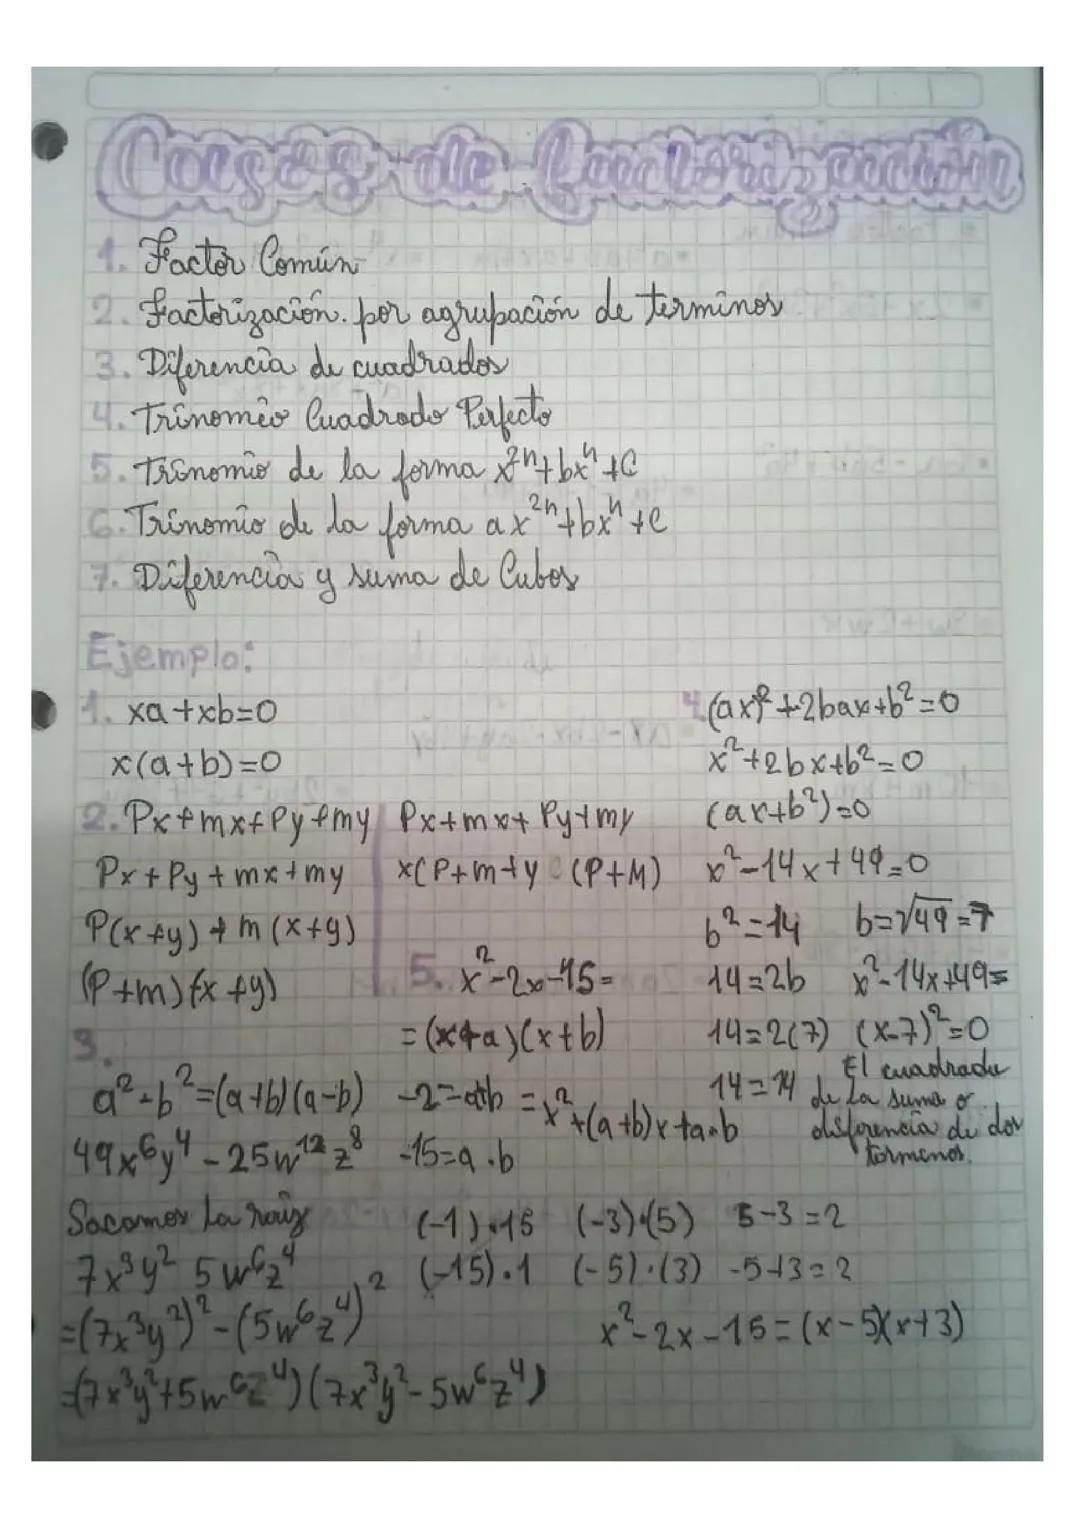 Casos de factorización
1. Factor Común
2. Factorización. por agrupación de terminos
3. Diferencia de cuadrados
4. Trinomio Cuadrado Perfecto
5. Trinomio de la forma x²ⁿ+bxⁿ+C
6. Trinomio de la forma ax²ⁿ+bxⁿ+c
7. Diferencia y suma de Cubos
Ejemplo:
1. xa+xb=0
x(a+b)=0
2. Px+mx+Py+my
Px+Py+mx+my
P(x+y)+m(x+y)
(P+m)(x+y)
Px+mx+Py+my
x(P+m+y (P+M)
3.
a²-b²=(a+b)(a-b)
49x⁶y⁴-25w¹²z⁸
Sacamos la raíz
7x³y² 5w⁶z⁴
=(7x³y²)²-(5w⁶z⁴)²
=(7x³y²+5w⁶z⁴)(7x³y²-5w⁶z⁴)
4. (ax)²+2bax+b²=0
x²+2bx+b²=0
(ax+b²)=0
x²-14x+49=0
b²=14 b=√49=7
14=2b x²-14x+49=
14=2(7) (x-7)²=0
14=14
El cuadrado
de la suma o
diferencia de dos
terminos.
5. x²-2x-15=
=(x+a)(x+b)
-2=a+b =x²+(a+b)x+a·b
-15=a·b
(-1)·15 (-3)·(5) 5-3=2
(-15)·1 (-5)·(3) -5+3=2
x²-2x-15=(x-5)(x+3)